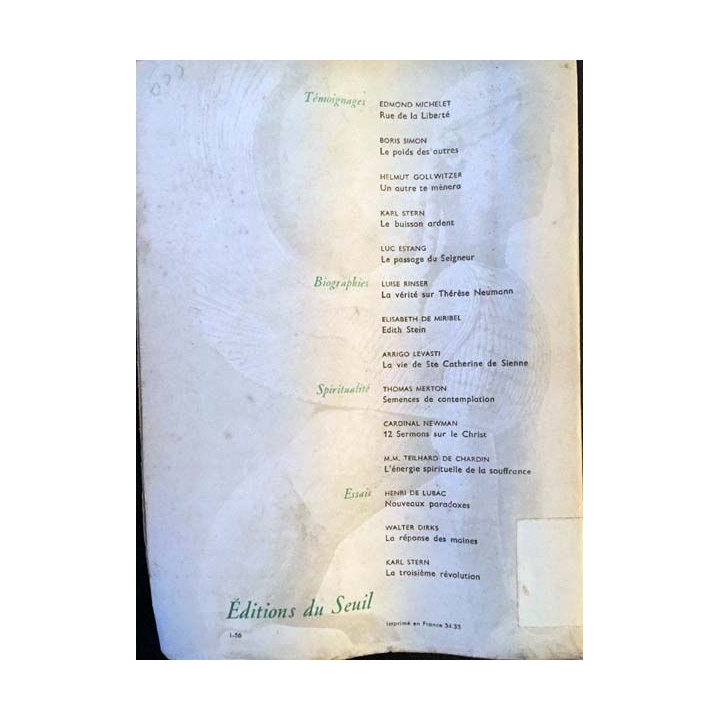 Témoignages
EDMOND MICHELET
Rue de la Liberté
BORIS SIMON
Le poids des autres
HELMUT GOLLWITZER
Un autre te mènera
KARL STERN
Le buisson ardent
LUC ESTANG
Le passage du Seigneur
Biographies
LUISE RINSER
La vérité sur Thérèse Neumann
ELISABETH DE MIRIBEL
Edith Stein
ARRIGO LEVASTI
La vie de Ste Catherine de Sienne
Spiritualité
THOMAS MERTON
Semences de contemplation
CARDINAL NEWMAN
12 Sermons sur le Christ
M.M. TEILHARD DE CHARDIN
L'énergie spirituelle de la souffrance
Essais
HENRI DE LUBAC
Nouveaux paradoxes
WALTER DIRKS
La réponse des moines
KARL STERN
La troisième révolution
Éditions du Seuil
1-56
Imprimé en France 34.35